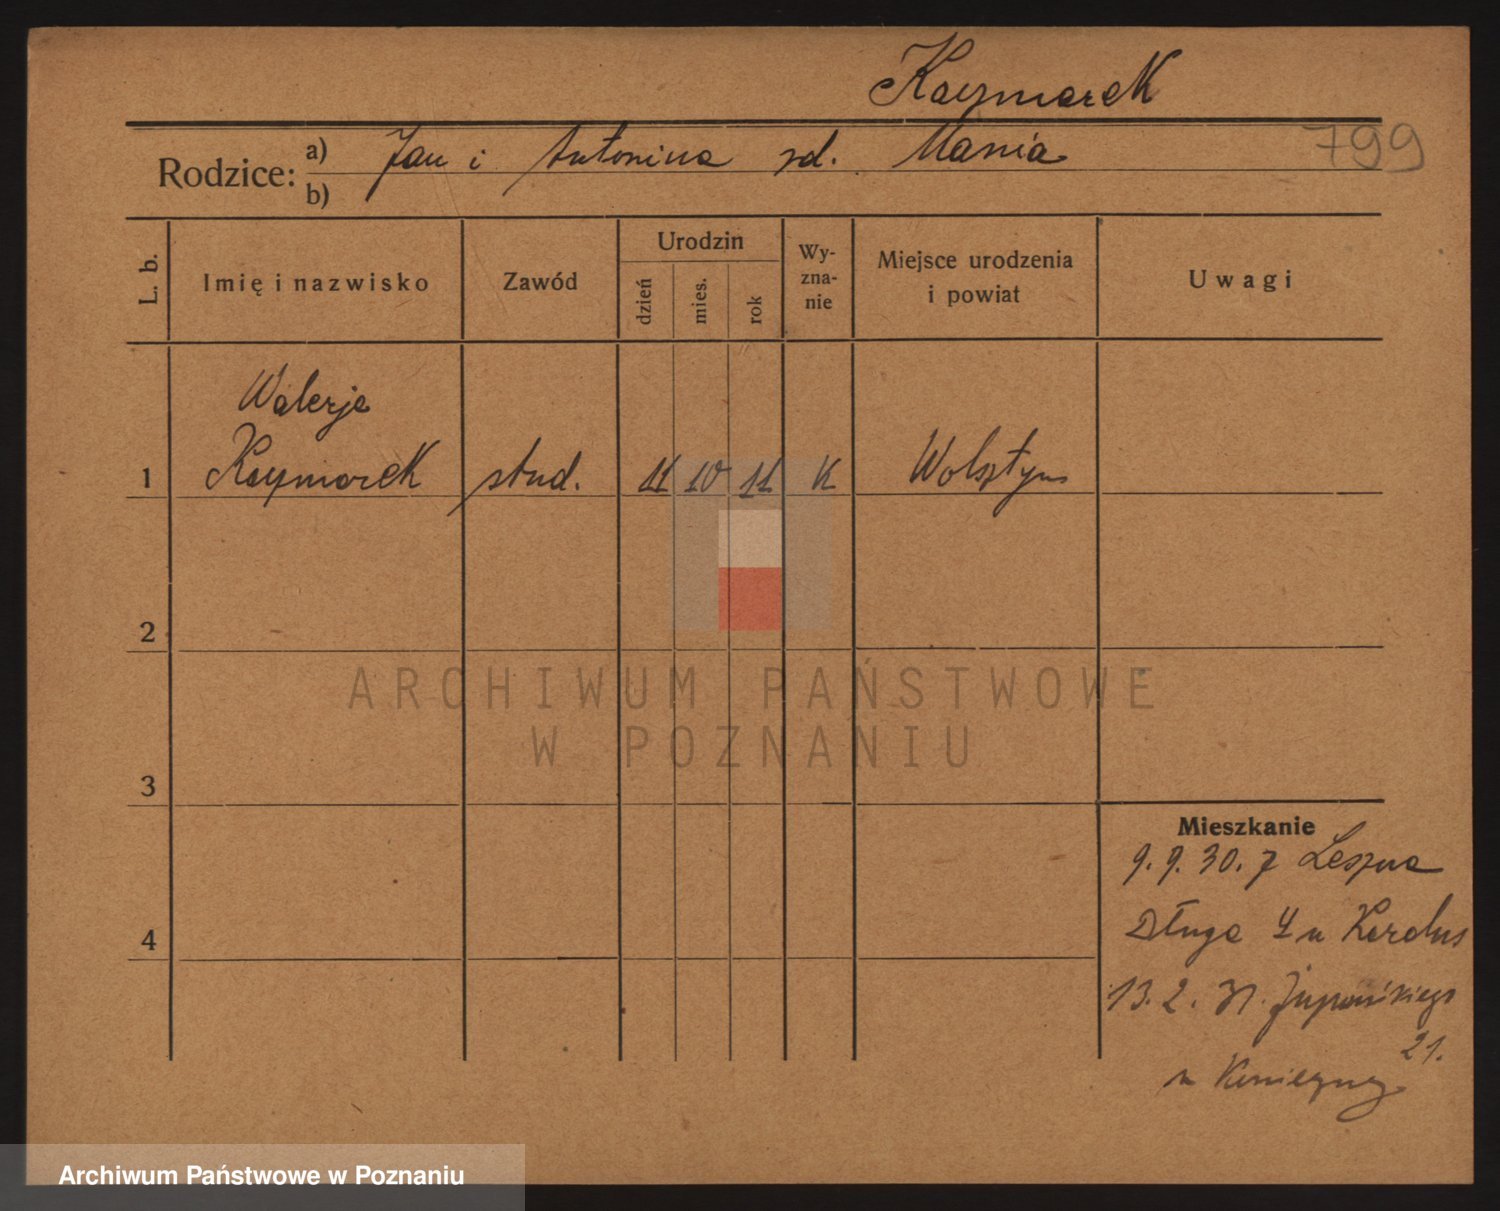 Kaczmarek
799
Rodzice: a) Jan i Antonina zd. Mania
b)
L. b.
Imię i nazwisko
Zawód
Urodzin
dzień
mies.
rok
Wy-
zna-
nie
Miejsce urodzenia
i powiat
Uwagi
Walerja
1 Kaczmarek stud. 11 10 11 K Wolsztyn
2
3
4
Mieszkanie
9. 9. 30. z Leszna
Długa 4 u
13. 2. 31. Żupańskiego
21.
u
ARCHIWUM PAŃSTWOWE
W POZNANIU
Archiwum Państwowe w Poznaniu